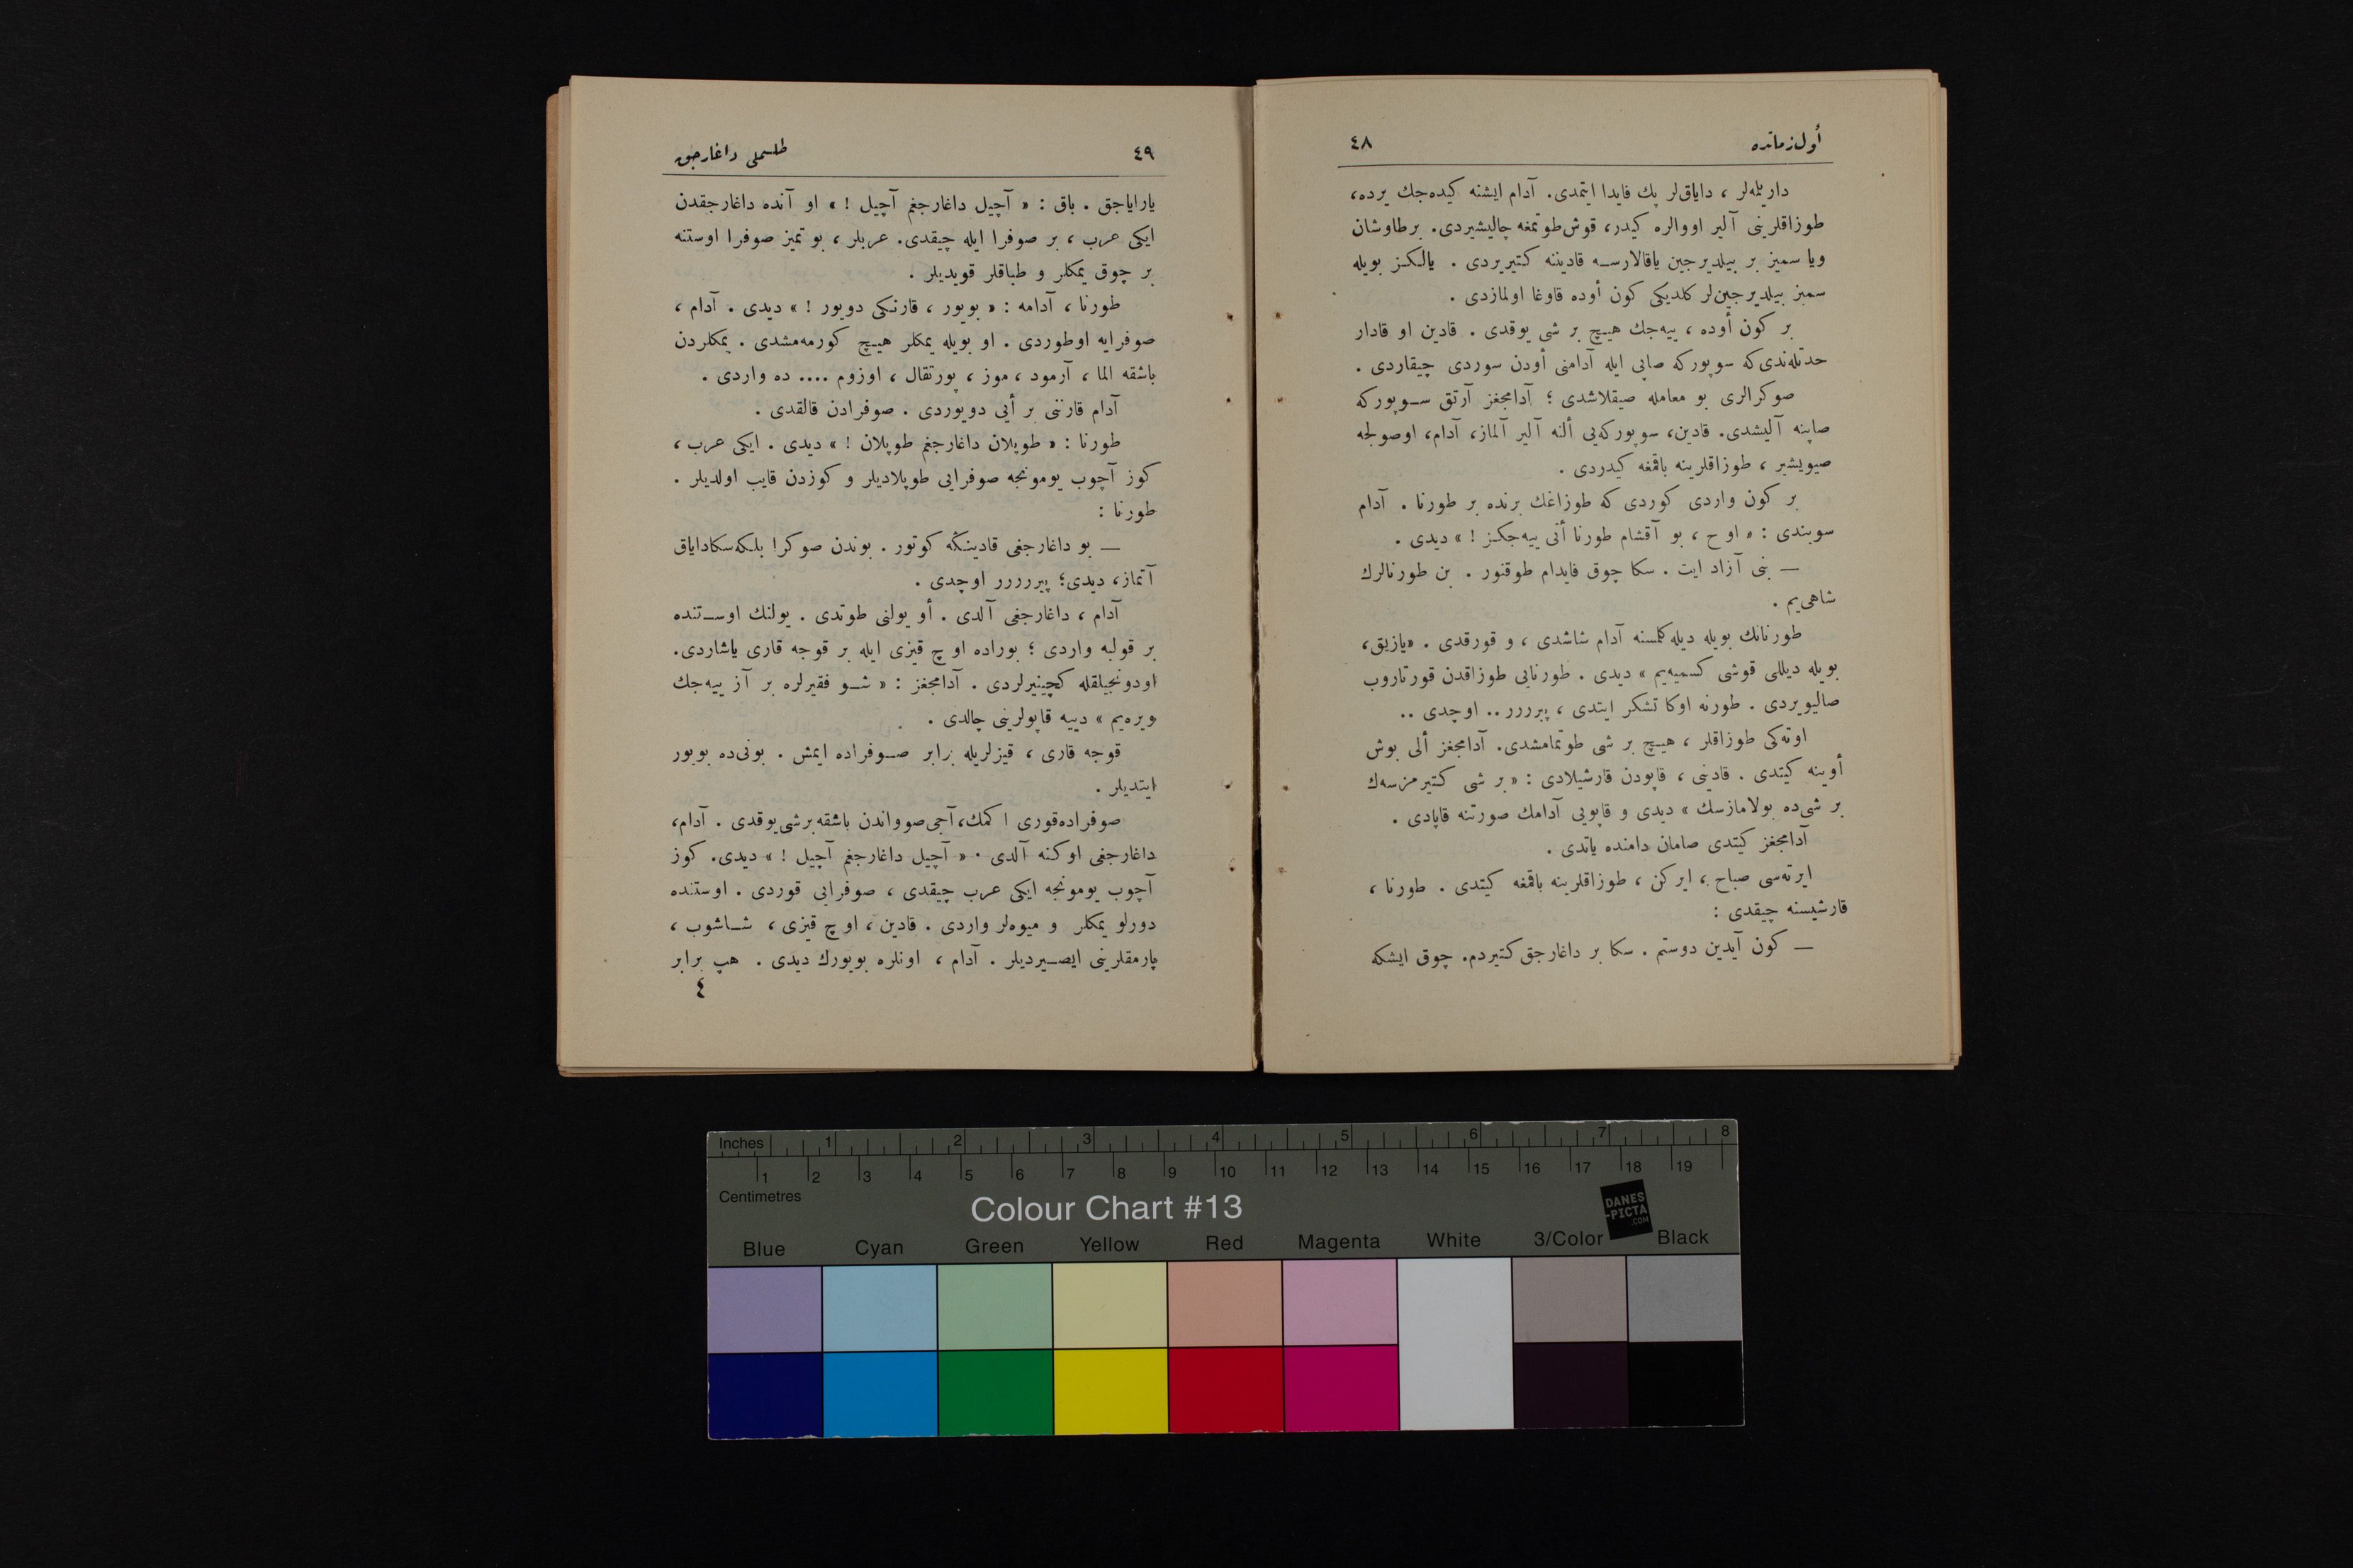 أول زمانده ٤٨
داریلمه‌لر ، دایاق‌لر پك فایدا ایتمدی. آدام ایشنه كیده‌جك یرده،
طوزاقلرینی آلیر اووالره كیدر، قوش طوتمغه چالیشیردی. بر طاوشان
ویا سمیز بر بیلدیرجین یاقالارسه قادیننه كتیریردی . یالكز بویله
سمیز بیلدیرجین‌لر كلدیكی كون أوده قاوغا اولمازدی .
بر كون أوده ، ییه‌جك هیچ بر شی یوقدی . قادین او قادار
حدتله‌ندی كه سوپوركه صاپی ایله آدامنی أودن سوردی چیقاردی .
صوكرالری بو معامله صیقلاشدی ؛ آدامجغز آرتق سوپوركه
صاپنه آلیشدی. قادین، سوپوركه‌یی ألنه آلیر آلماز، آدام، اوصولجه
صیویشیر ، طوزاقلرینه باقمغه كیدردی .
بر كون واردی كوردی كه طوزاغك برنده بر طورنا . آدام
سویندی : « اوح ، بو آقشام طورنا أتی ییه‌جكز ! » دیدی .
— بنی آزاد ایت . سكا چوق فایدام طوقنور . بن طورنالرك
شاهی‌یم .
طورنانك بویله دیله كلمسنه آدام شاشدی ، و قورقدی . «یازیق،
بویله دیللی قوشی كسمیه‌یم » دیدی . طورنایی طوزاقدن قورتاروب
صالیویردی . طورنه اوكا تشكر ایتدی ، پیرررر .. اوچدی ..
اوته‌كی طوزاقلر ، هیچ بر شی طوتمامشدی. آدامجغز ألی بوش
أوینه كیتدی . قادینی ، قاپودن قارشیلادی : « بر شی كتیرمزسه‌ك
بر شی‌ده بولامازسك » دیدی و قاپویی آدامك صورتنه قاپادی .
آدامجغز كیتدی صامان دامنده یاتدی .
ایرته‌سی صباح ، ایركن ، طوزاقلرینه باقمغه كیتدی . طورنا ،
قارشیسنه چیقدی :
— كون آیدین دوستم . سكا بر داغارجق كتیردم. چوق ایشكه
٤٩ طلسملی داغارجق
یارایاجق . باق : « آچیل داغارجغم آچیل ! » او آنده داغارجقدن
ایكی عرب ، بر صوفرا ایله چیقدی. عربلر ، بو تمیز صوفرا اوستنه
بر چوق یمكلر و طباقلر قویدیلر .
طورنا ، آدامه : « بویور ، قارنكی دویور ! » دیدی . آدام ،
صوفرایه اوطوردی . او بویله یمكلر هیچ كورمه‌مشدی . یمكلردن
باشقه الما ، آرمود ، موز ، پورتقال ، اوزوم .... ده واردی .
آدام قارننی بر أیی دویوردی . صوفرادن قالقدی .
طورنا : « طوپلان داغارجغم طوپلان ! » دیدی . ایكی عرب ،
كوز آچوب یومونجه صوفرایی طوپلادیلر و كوزدن قایب اولدیلر .
طورنا :
— بو داغارجغی قادینكه كوتور . بوندن صوكرا بلكه سكا دایاق
آتماز، دیدی؛ پیررررر اوچدی .
آدام ، داغارجغی آلدی . أو یولنی طوتدی . یولنك اوستنده
بر قولبه واردی ؛ بوراده اوچ قیزی ایله بر قوجه قاری یاشاردی.
اودونجیلقله كچینیرلردی . آدامجغز : « شو فقیرلره بر آز ییه‌جك
ویره‌یم » دییه قاپولرینی چالدی .
قوجه قاری ، قیزلریله برابر صوفراده ایمش . بونی‌ده بویور
ایتدیلر .
صوفراده قوری اكمك، آجی صوواندن باشقه بر شی یوقدی . آدام،
داغارجغی اوكنه آلدی . « آچیل داغارجغم آچیل ! » دیدی. كوز
آچوب یومونجه ایكی عرب چیقدی ، صوفرایی قوردی . اوستنده
دورلو یمكلر و میوه‌لر واردی . قادین ، اوچ قیزی ، شاشوب ،
پارمقلرینی ایصیردیلر . آدام ، اونلره بویورك دیدی . هپ برابر
٤
Inches 1 2 3 4 5 6 7 8
1 2 3 4 5 6 7 8 9 10 11 12 13 14 15 16 17 18 19
Centimetres
Colour Chart #13
DANES
-PICTA
.COM
Blue Cyan Green Yellow Red Magenta White 3/Color Black